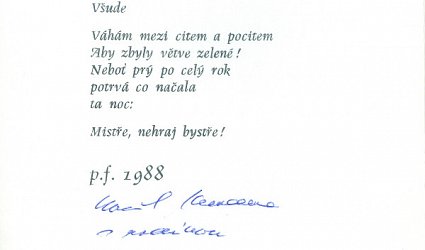 Všude
Váhám mezi citem a pocitem
Aby zbyly větve zelené!
Neboť prý po celý rok
potrvá co načala
ta noc:
Mistře, nehraj bystře!
p.f. 1988
s rodinou